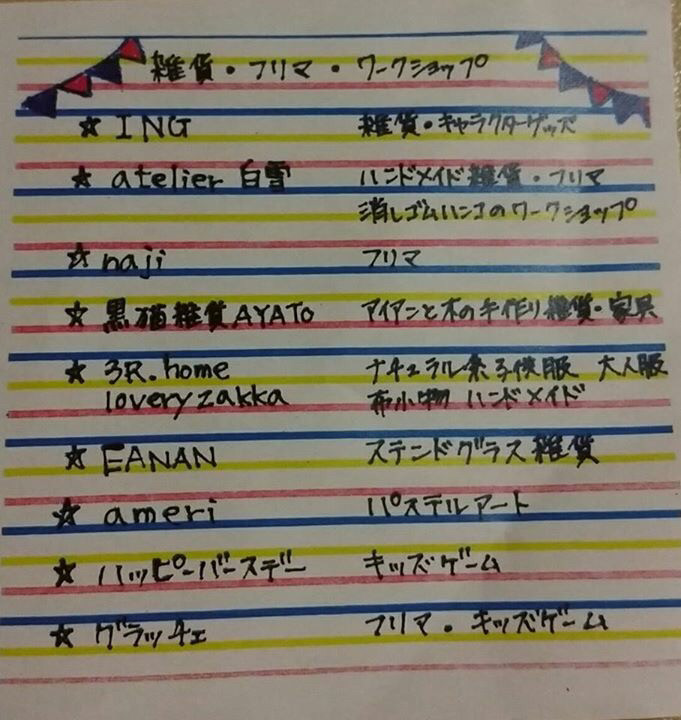 雑貨・フリマ・ワークショップ
☆ ING 雑貨・キャラクターグッズ
☆ atelier 白雪 ハンドメイド雑貨・フリマ
消しゴムハンコのワークショップ
☆ naji フリマ
☆ 黒猫雑貨AYATO アイアンと木の手作り雑貨・家具
☆ 3R.home ナチュラル系子供服 大人服
lovery zakka 布小物 ハンドメイド
☆ EANAN ステンドグラス雑貨
☆ ameri パステルアート
☆ ハッピーバースデー キッズゲーム
☆ グラッチェ フリマ・キッズゲーム